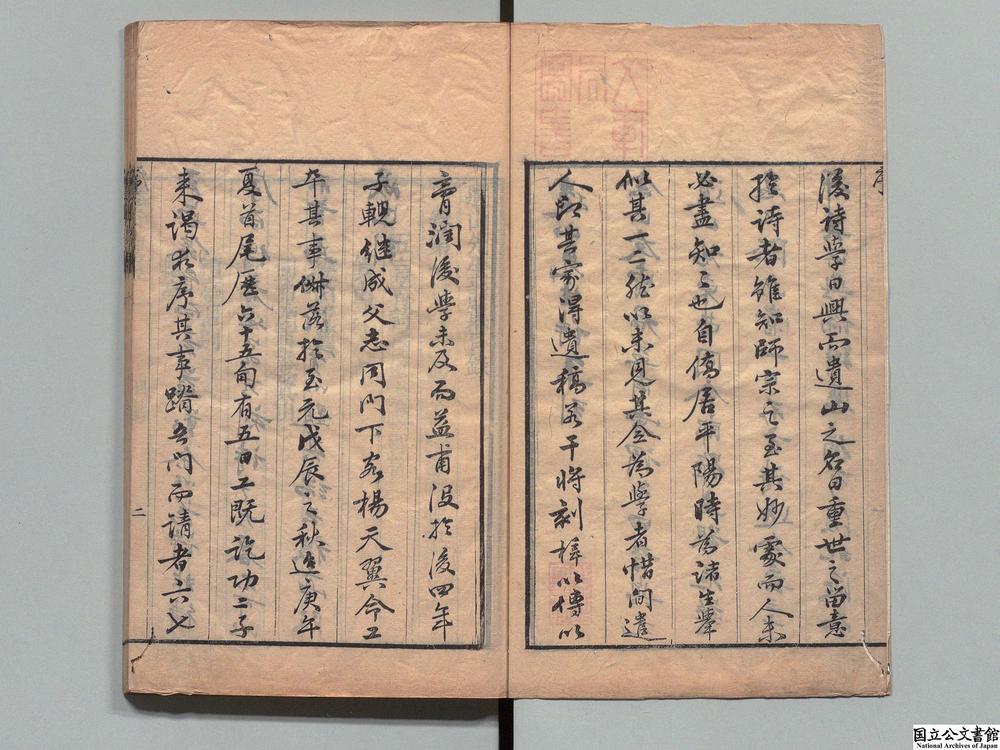 後詩学日興而遺山之名日重世之留意
於詩者雖知師宗之至其妙處而人未
必盡知之也自僑居平陽時為諸生舉
似其一二然以未見其全為學者惜間遣
人即其家得遺稿若干將刻梓以傳以
膏润後學未及而益甫没於後四年
子輗继成父志同門下客楊天翼命工
卒其事僝落於至元戊辰之秋迄庚午
夏首尾歷六十五旬有五日工既訖功二子
来谒求序其事踏吾門而請者六七
二
国立公文書館
National Archives of Japan